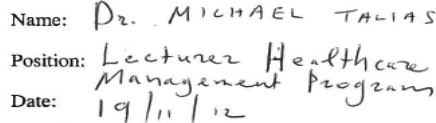 Name: Dr. MICHAEL TALIAS
Position: Lecturer Healthcare
Management Program
Date: 19/11/12